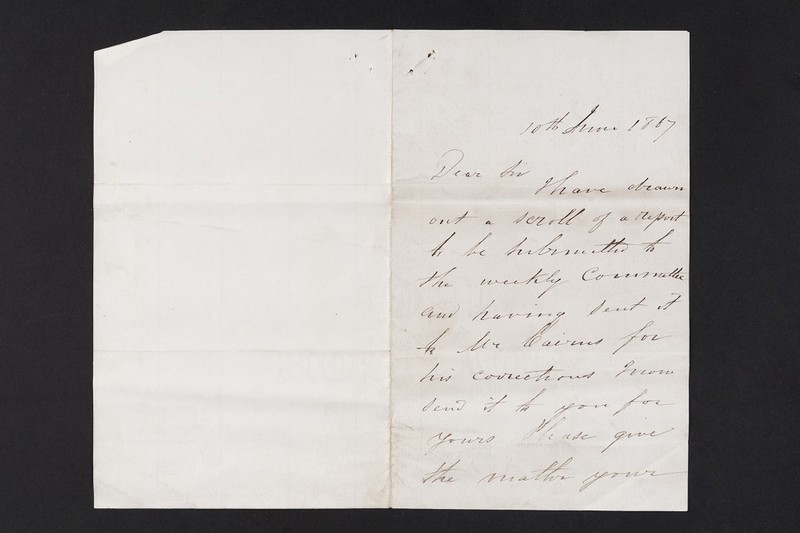 10th June 1867
Dear Sir
I have drawn
out a scroll of a report
to be submitted to
the weekly Committee
and having sent it
to Mr Cairns for
his corrections I now
send it to you for
yours Please give
the matter your